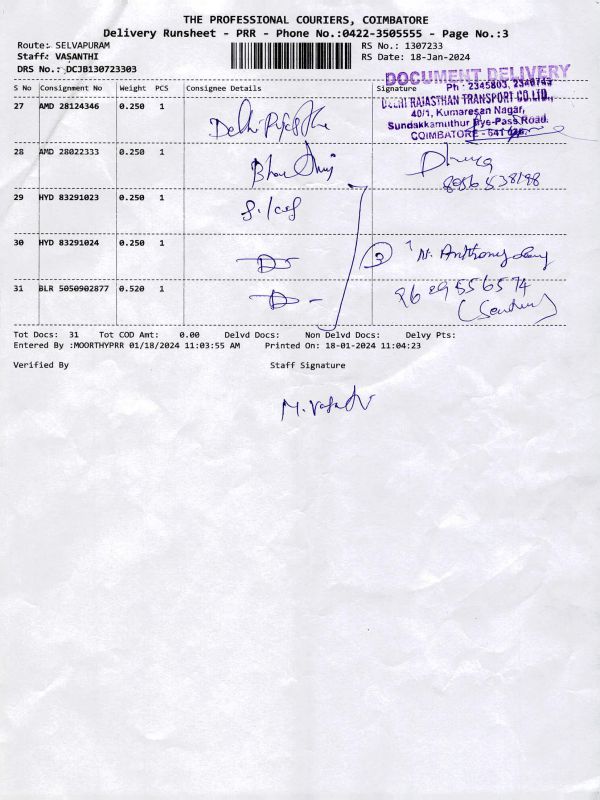 THE PROFESSIONAL COURIERS, COIMBATORE
Delivery Runsheet - PRR - Phone No.:0422-3505555 - Page No.:3
Route: SELVAPURAM
RS No.: 1307233
Staff: VASANTHI
RS Date: 18-Jan-2024
DRS No.: DCJB130723303
DOCUMENT DELIVERY
S No Consignment No Weight PCS Consignee Details Signature
Ph : 2345803, 2340743
DELHI RAJASTHAN TRANSPORT CO.LTD.,
40/1, Kumaresan Nagar,
Sundakkamuthur Bye-Pass Road.
COIMBATORE - 641 026
27 AMD 28124346 0.250 1 Delhi
28 AMD 28022333 0.250 1
29 HYD 83291023 0.250 1
30 HYD 83291024 0.250 1 N. Anthony
31 BLR 5050902877 0.520 1
Tot Docs: 31 Tot COD Amt: 0.00 Delvd Docs: Non Delvd Docs: Delvy Pts:
Entered By :MOORTHYPRR 01/18/2024 11:03:55 AM Printed On: 18-01-2024 11:04:23
Verified By Staff Signature